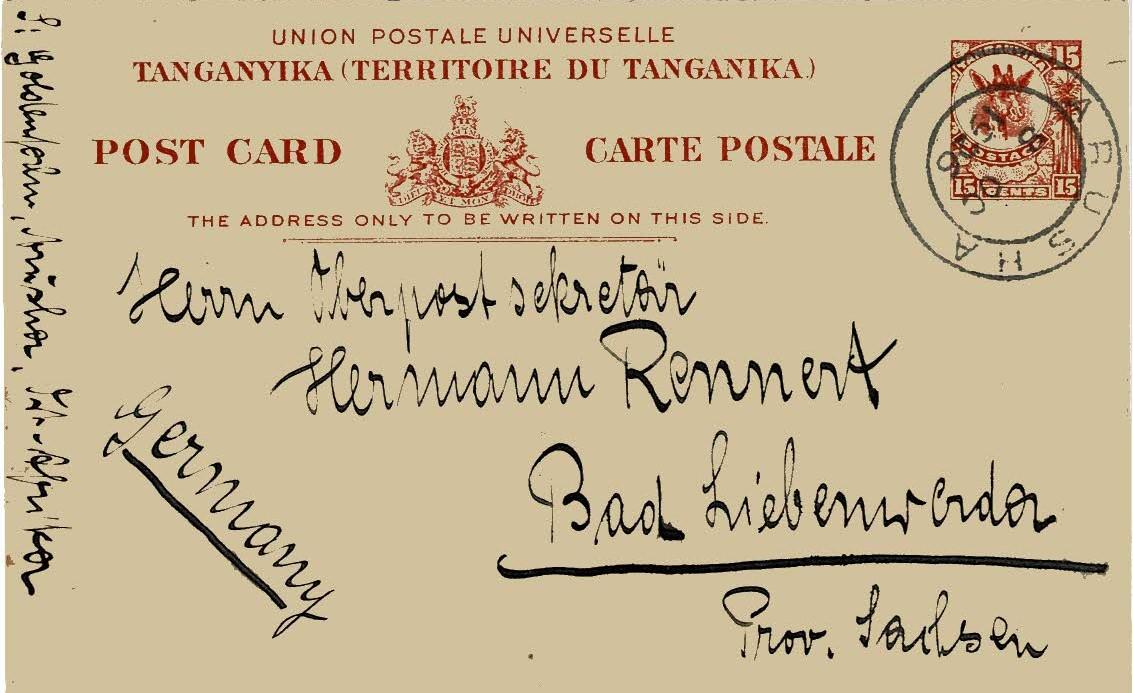 UNION POSTALE UNIVERSELLE
TANGANYIKA (TERRITOIRE DU TANGANIKA.)
POST CARD
CARTE POSTALE
DIEU ET MON DROIT
THE ADDRESS ONLY TO BE WRITTEN ON THIS SIDE.
15
POSTAGE
15 CENTS 15
ARUSHA
Herrn Oberpostsekretär
Hermann Rennert
Bad Liebenwerda
Prov. Sachsen
Germany
Arusha, Ost-Afrika